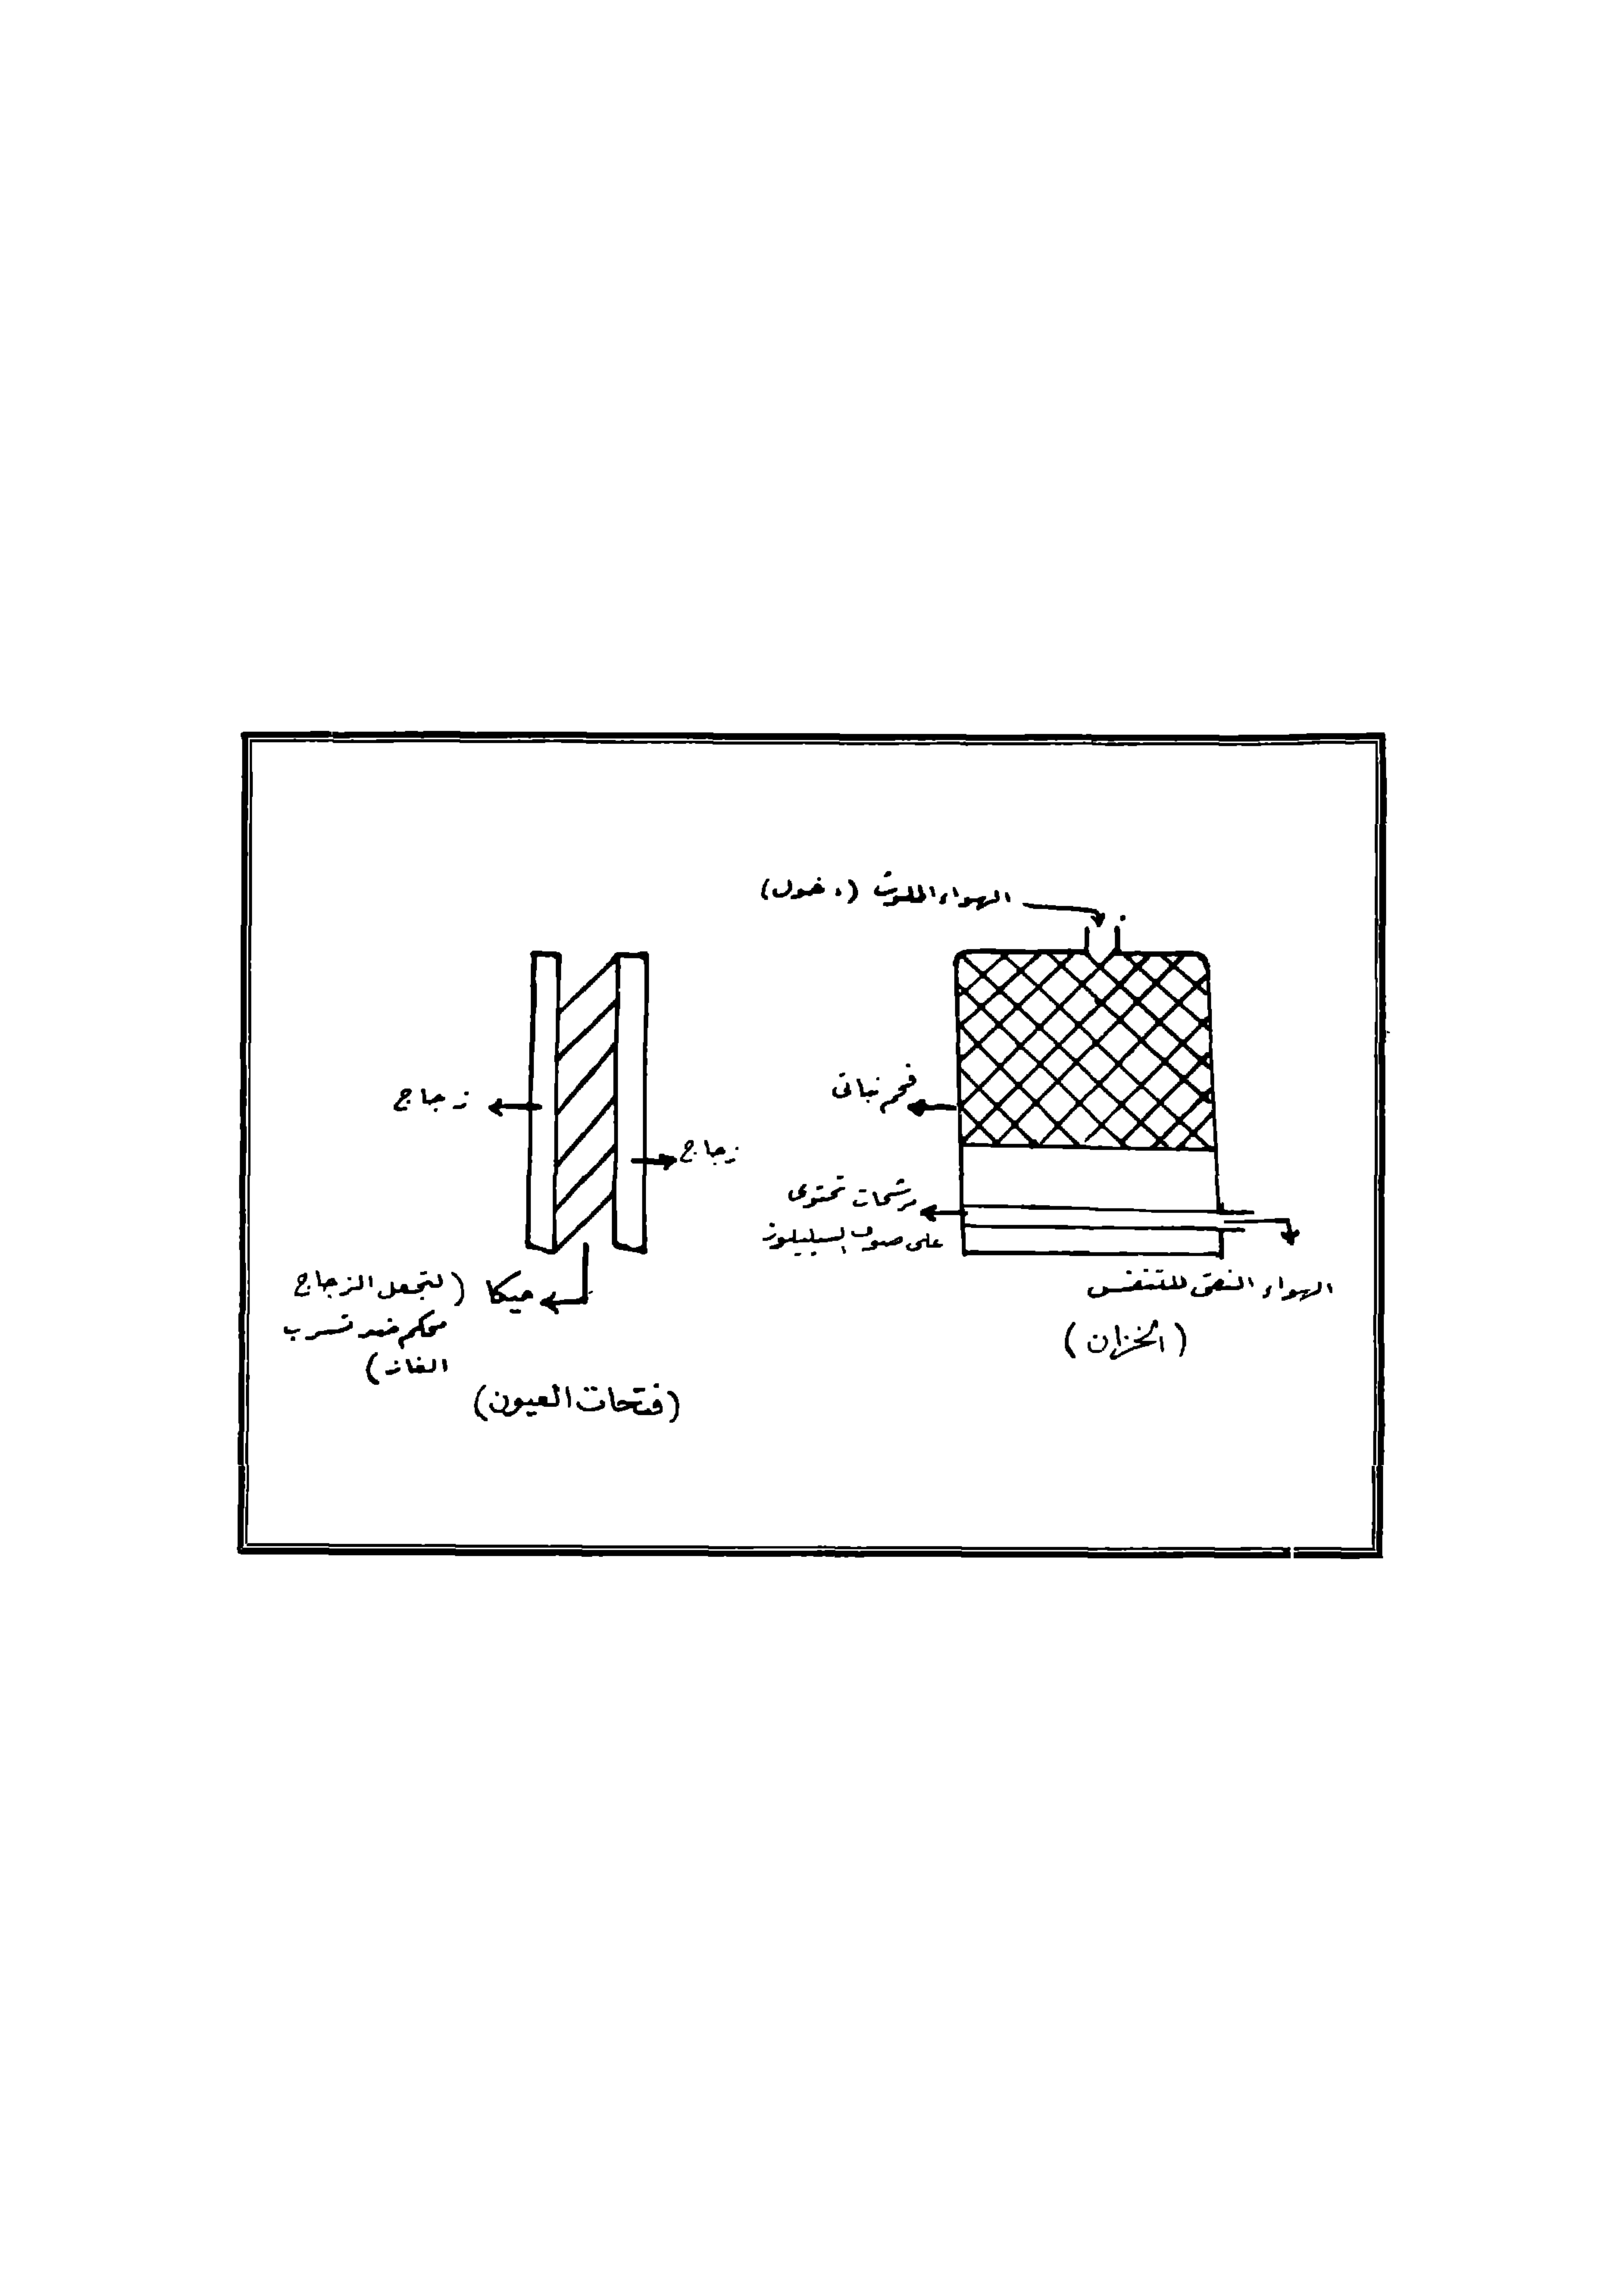 الهواء الملوث (دخول)
فحم نباتى
مرشحات تحتوى
على صوف السيليلوز
الهواء النقى للتنفس
(الخزان)
زجاج
زجاج
ميكا (لتجعل الزجاج
محكم ضد تسرب
الغاز)
(فتحات العيون)